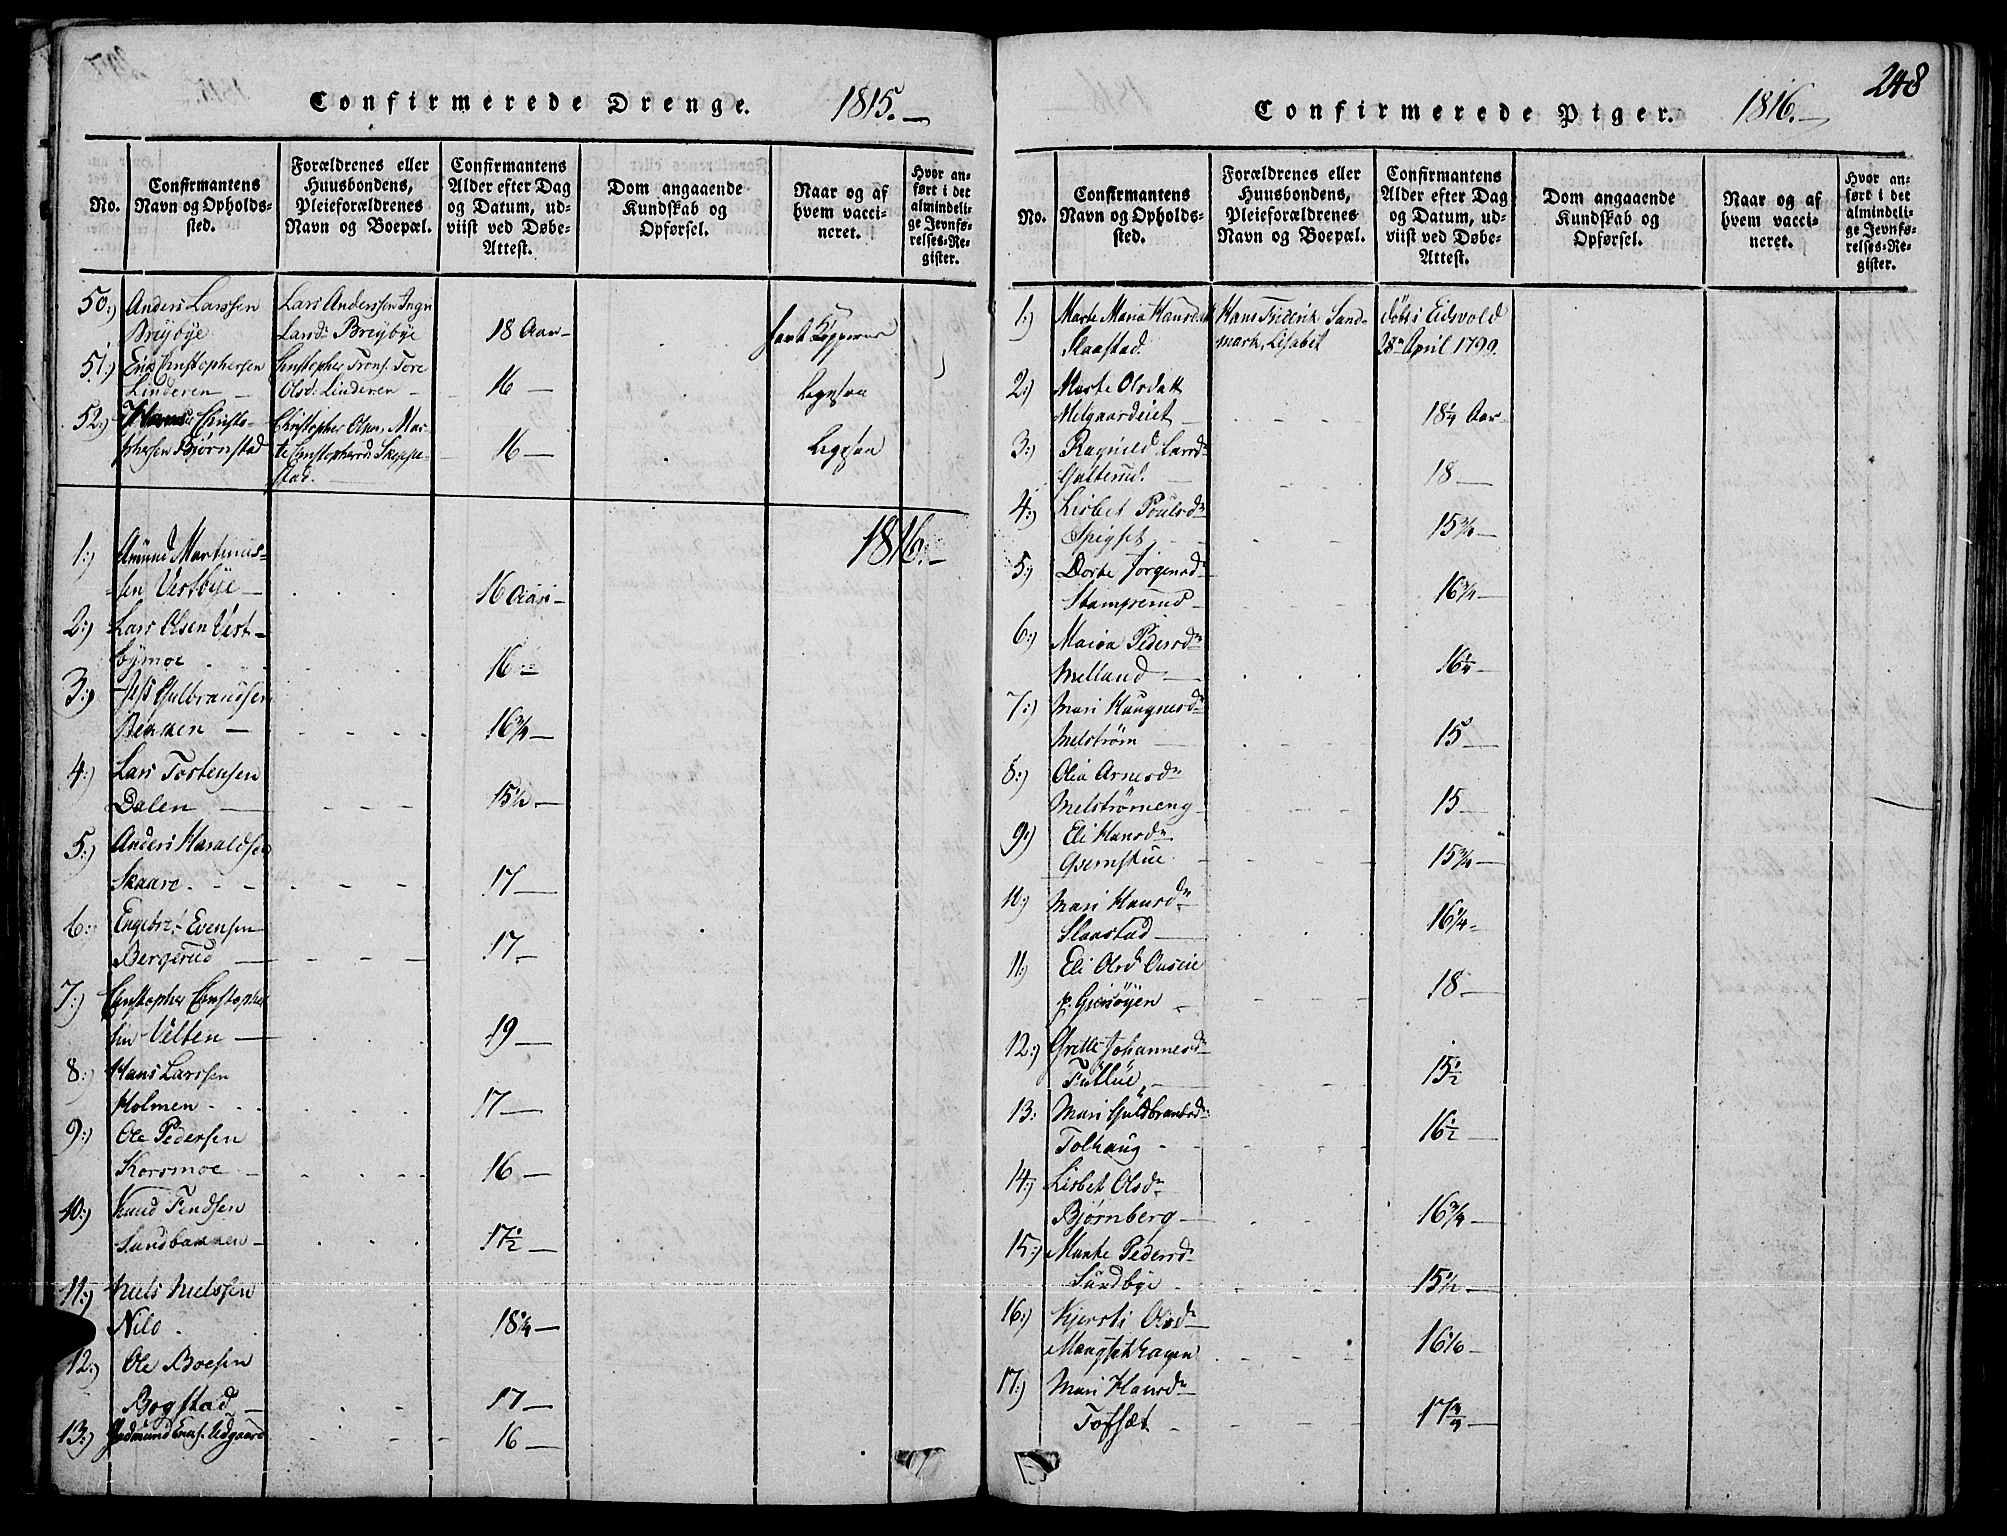 Confirmerede Drenge. 1815.
No.
Confirmantens
Navn og Opholds-
sted.
Forældrenes eller
Huusbondens,
Pleieforældrenes
Navn og Boepæl.
Confirmantens
Alder efter Dag
og Datum, ud-
viist ved Døbe-
Attest.
Dom angaaende
Kundskab og
Opførsel.
Naar og af
hvem vacci-
neret.
Hvor an-
ført i det
almindeli-
ge Jevnfø-
relses-Re-
gister.
50:) Anders Larssen Lars Anderssen Ing
Breÿbÿe Larsd: Breÿbÿe 18 Aar havt Kopperne
51:) Christophersen Christopher Trons. Tore
Linderen Olsd: Linderen 16
52:) Christo- Christopher Olsen, Mar-
phersen Bjørnstad te Christophersd Skeppe- 16
stad.
1816.
1:) Amund Martinus-
sen Vestbÿe 16 Aar
2:) Lars Olsen Vest-
bÿmoe 16
3:) Gulbrandsen
Bekken 16 3/4
4:) Lars Tostensen
Dalen 15 1/2
5:) Anders Haraldsen
Skaare 17
6:) Engebret Evensen
Bergerud 17
7:) Christopher Christopher
sen Velten 19
8:) Hans Larssen
Holmen 17
9:) Ole Pedersen
Korsmoe 16
10:) Knud Findsen
Sandbakken 17 1/2
11:) Niels Nielssen
Nilo 18 1/4
12:) Ole Boesen
Bogstad 17
13:) Gudmund Udgaard 16
248
Confirmerede Piger. 1816.
No.
Confirmantens
Navn og Opholds-
sted.
Forældrenes eller
Huusbondens,
Pleieforældrenes
Navn og Boepæl.
Confirmantens
Alder efter Dag
og Datum, ud-
viist ved Døbe-
Attest.
Dom angaaende
Kundskab og
Opførsel.
Naar og af
hvem vacci-
neret.
Hvor an-
ført i det
almindeli-
ge Jevnfø-
relses-Re-
gister.
1:) Marte Maria Hansdatt Hans Fridrik Sand- døbt i Eidsvold
Slaastad. mark, Lisabet 28 April 1799.
2:) Marte Olsdatt
Melgaardeiet 18 1/4 Aar
3:) Ragnild Larsd
Gulterud. 18
4:) Lisbet Poulsd
Spigset 15 3/4
5:) Dorte Jørgensd
Stamperud 16 3/4
6:) Maria Pedersd
Melland 16 1/4
7:) Mari Haagnesd
Melstrøm 15
8:) Olea Arnesd
Melstrømeng 15
9:) Eli Hansd
Qvernstue 15 3/4
10:) Mari Hansd
Slaastad 16 1/4
11:) Eli Olsd
18
12:) Grette Johannesd
15 1/2
13: Mari Guldbrandsd
Tolhaug 16 1/2
14:) Lisbet Olsd
Bjørnberg 16 3/4
15:) Marte Pedersd
Sundbÿe 15 1/2
16:) Kjersti Olsd
Mangset hagen 16 1/6
17:) Mari Hansd
Tofsæt 17 3/4